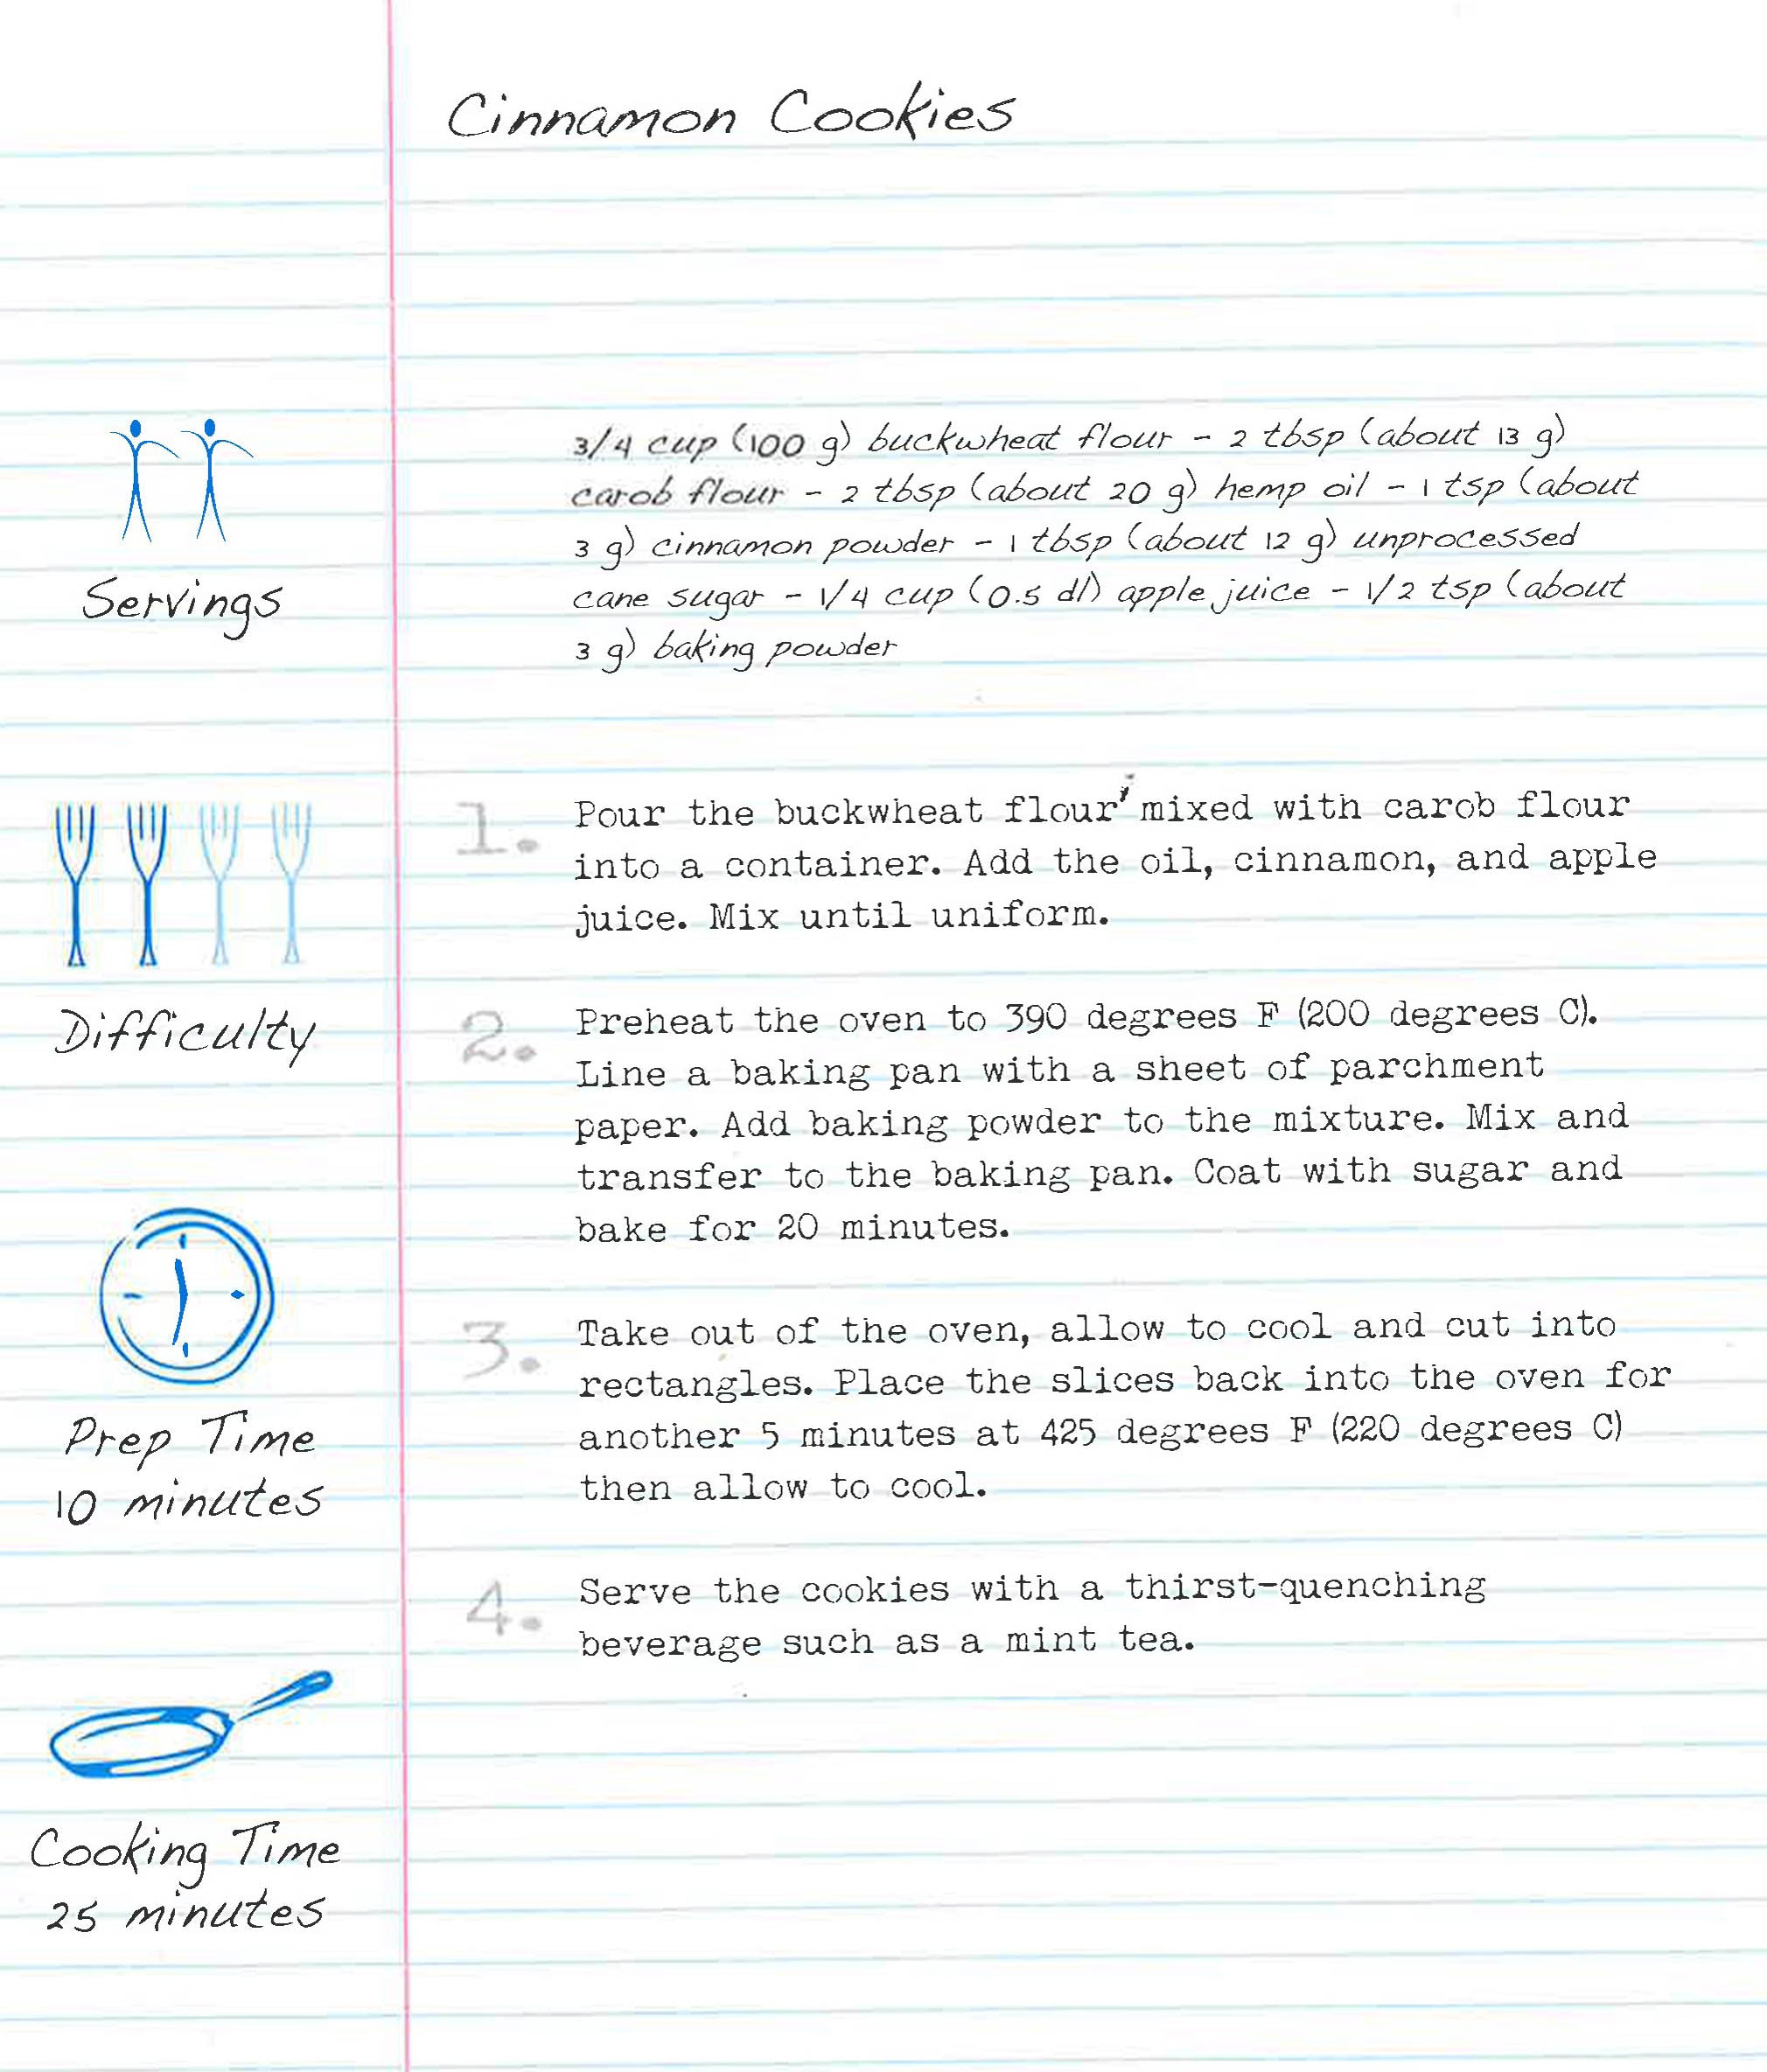 Cinnamon Cookies
Servings
3/4 cup (100 g) buckwheat flour - 2 tbsp (about 13 g)
carob flour - 2 tbsp (about 20 g) hemp oil - 1 tsp (about
3 g) cinnamon powder - 1 tbsp (about 12 g) unprocessed
cane sugar - 1/4 cup (0.5 dl) apple juice - 1/2 tsp (about
3 g) baking powder
Difficulty
Prep Time
10 minutes
Cooking Time
25 minutes
1. Pour the buckwheat flour mixed with carob flour
into a container. Add the oil, cinnamon, and apple
juice. Mix until uniform.
2. Preheat the oven to 390 degrees F (200 degrees C).
Line a baking pan with a sheet of parchment
paper. Add baking powder to the mixture. Mix and
transfer to the baking pan. Coat with sugar and
bake for 20 minutes.
3. Take out of the oven, allow to cool and cut into
rectangles. Place the slices back into the oven for
another 5 minutes at 425 degrees F (220 degrees C)
then allow to cool.
4. Serve the cookies with a thirst-quenching
beverage such as a mint tea.